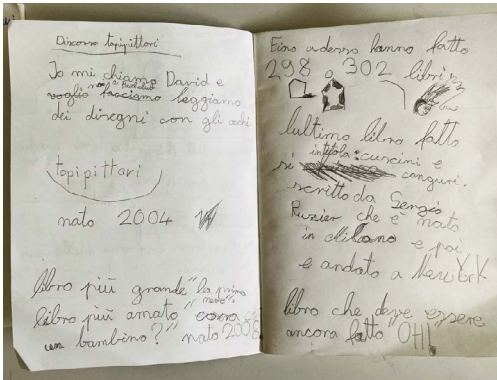 Discorso topipittori
Io mi chiamo David e
voglio facciamo leggiamo
dei disegni con gli ochi
topipittari
nato 2004
libro più grande "la prima
neve".
libro più amato "cosa
un bambino?" nato 2008
Fino adesso hanno fatto
298 o 302 libri
lultimo libro fatto
si intitola: cuscini e
canguri.
scritto da Sergio
Ruzier che è nato
in Milano e poi
e andato a New York
libro che deve essere
ancora fatto "OH!"